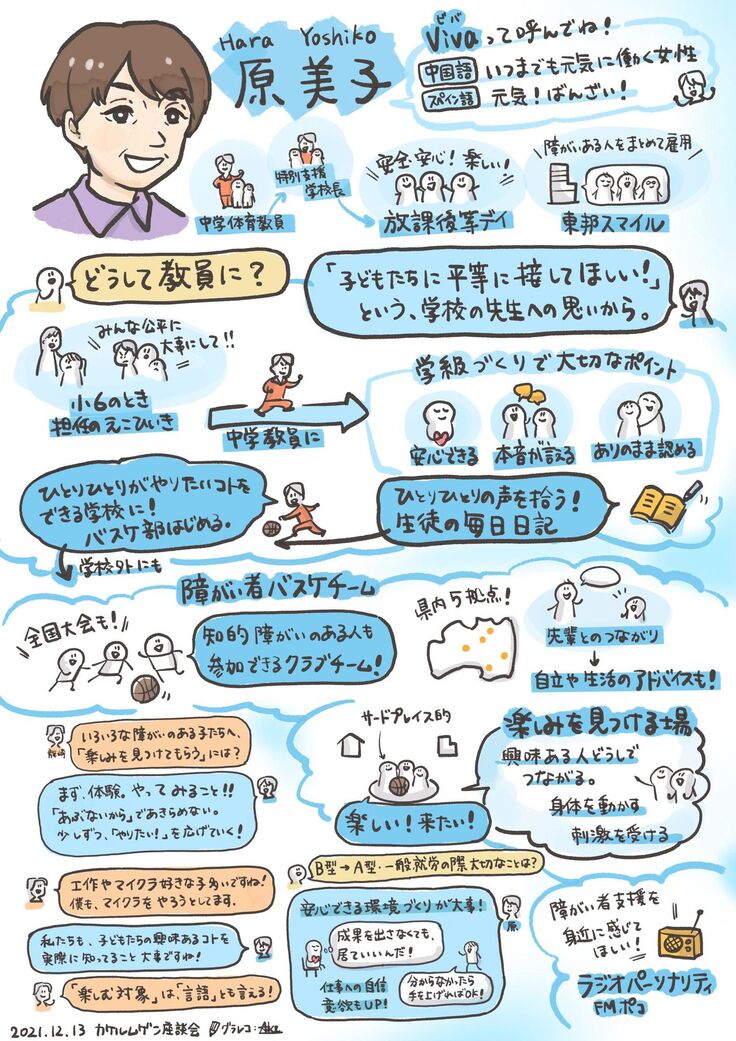 Hara Yoshiko
原 美子
ビバ
Vivaって呼んでね!
中国語 いつまでも元気に働く女性
スペイン語 元気!ばんざい!
中学体育教員
特別支援
学校長
安全・安心!楽しい!
放課後等デイ
障がいある人をまとめて雇用
東邦スマイル
どうして教員に?
「子どもたちに平等に接してほしい!」
という、学校の先生への思いから。
みんな公平に
大事にして!!
小6のとき
担任のえこひいき
中学教員に
学級づくりで大切なポイント
安心できる
本音が言える
ありのまま認める
ひとりひとりの声を拾う!
生徒の毎日日記
ひとりひとりがやりたいコトを
できる学校に!
バスケ部はじめる。
学校外にも
障がい者バスケチーム
全国大会も!
知的障がいのある人も
参加できるクラブチーム!
県内5拠点!
先輩とのつながり
自立や生活のアドバイスも!
いろいろな障がいのある子たちへ、
「楽しみを見つけてもらう」には?
まず、体験。やってみること!!
「あぶないから」であきらめない。
少しずつ、「やりたい!」を広げていく!
サードプレイス的
楽しい!来たい!
楽しみを見つける場
興味ある人どうしで
つながる。
身体を動かす
刺激を受ける
工作やマイクラ好きな子多いですね!
僕も、マイクラをやろうとしてます。
私たちも、子どもたちの興味あるコトを
実際に知ってること大事ですね!
「楽しむ対象」は、「言語」とも言える!
B型→A型・一般就労の際大切なことは?
安心できる環境づくりが大事!
原
成果を出さなくても、
居ていいんだ!
仕事への自信
意欲もUP!
分からなかったら
手を上げればOK!
障がい者支援を
身近に感じて
ほしい!
ラジオパーソナリティ
FMポコ
2021.12.13 カケルムゲン座談会 グラレコ: